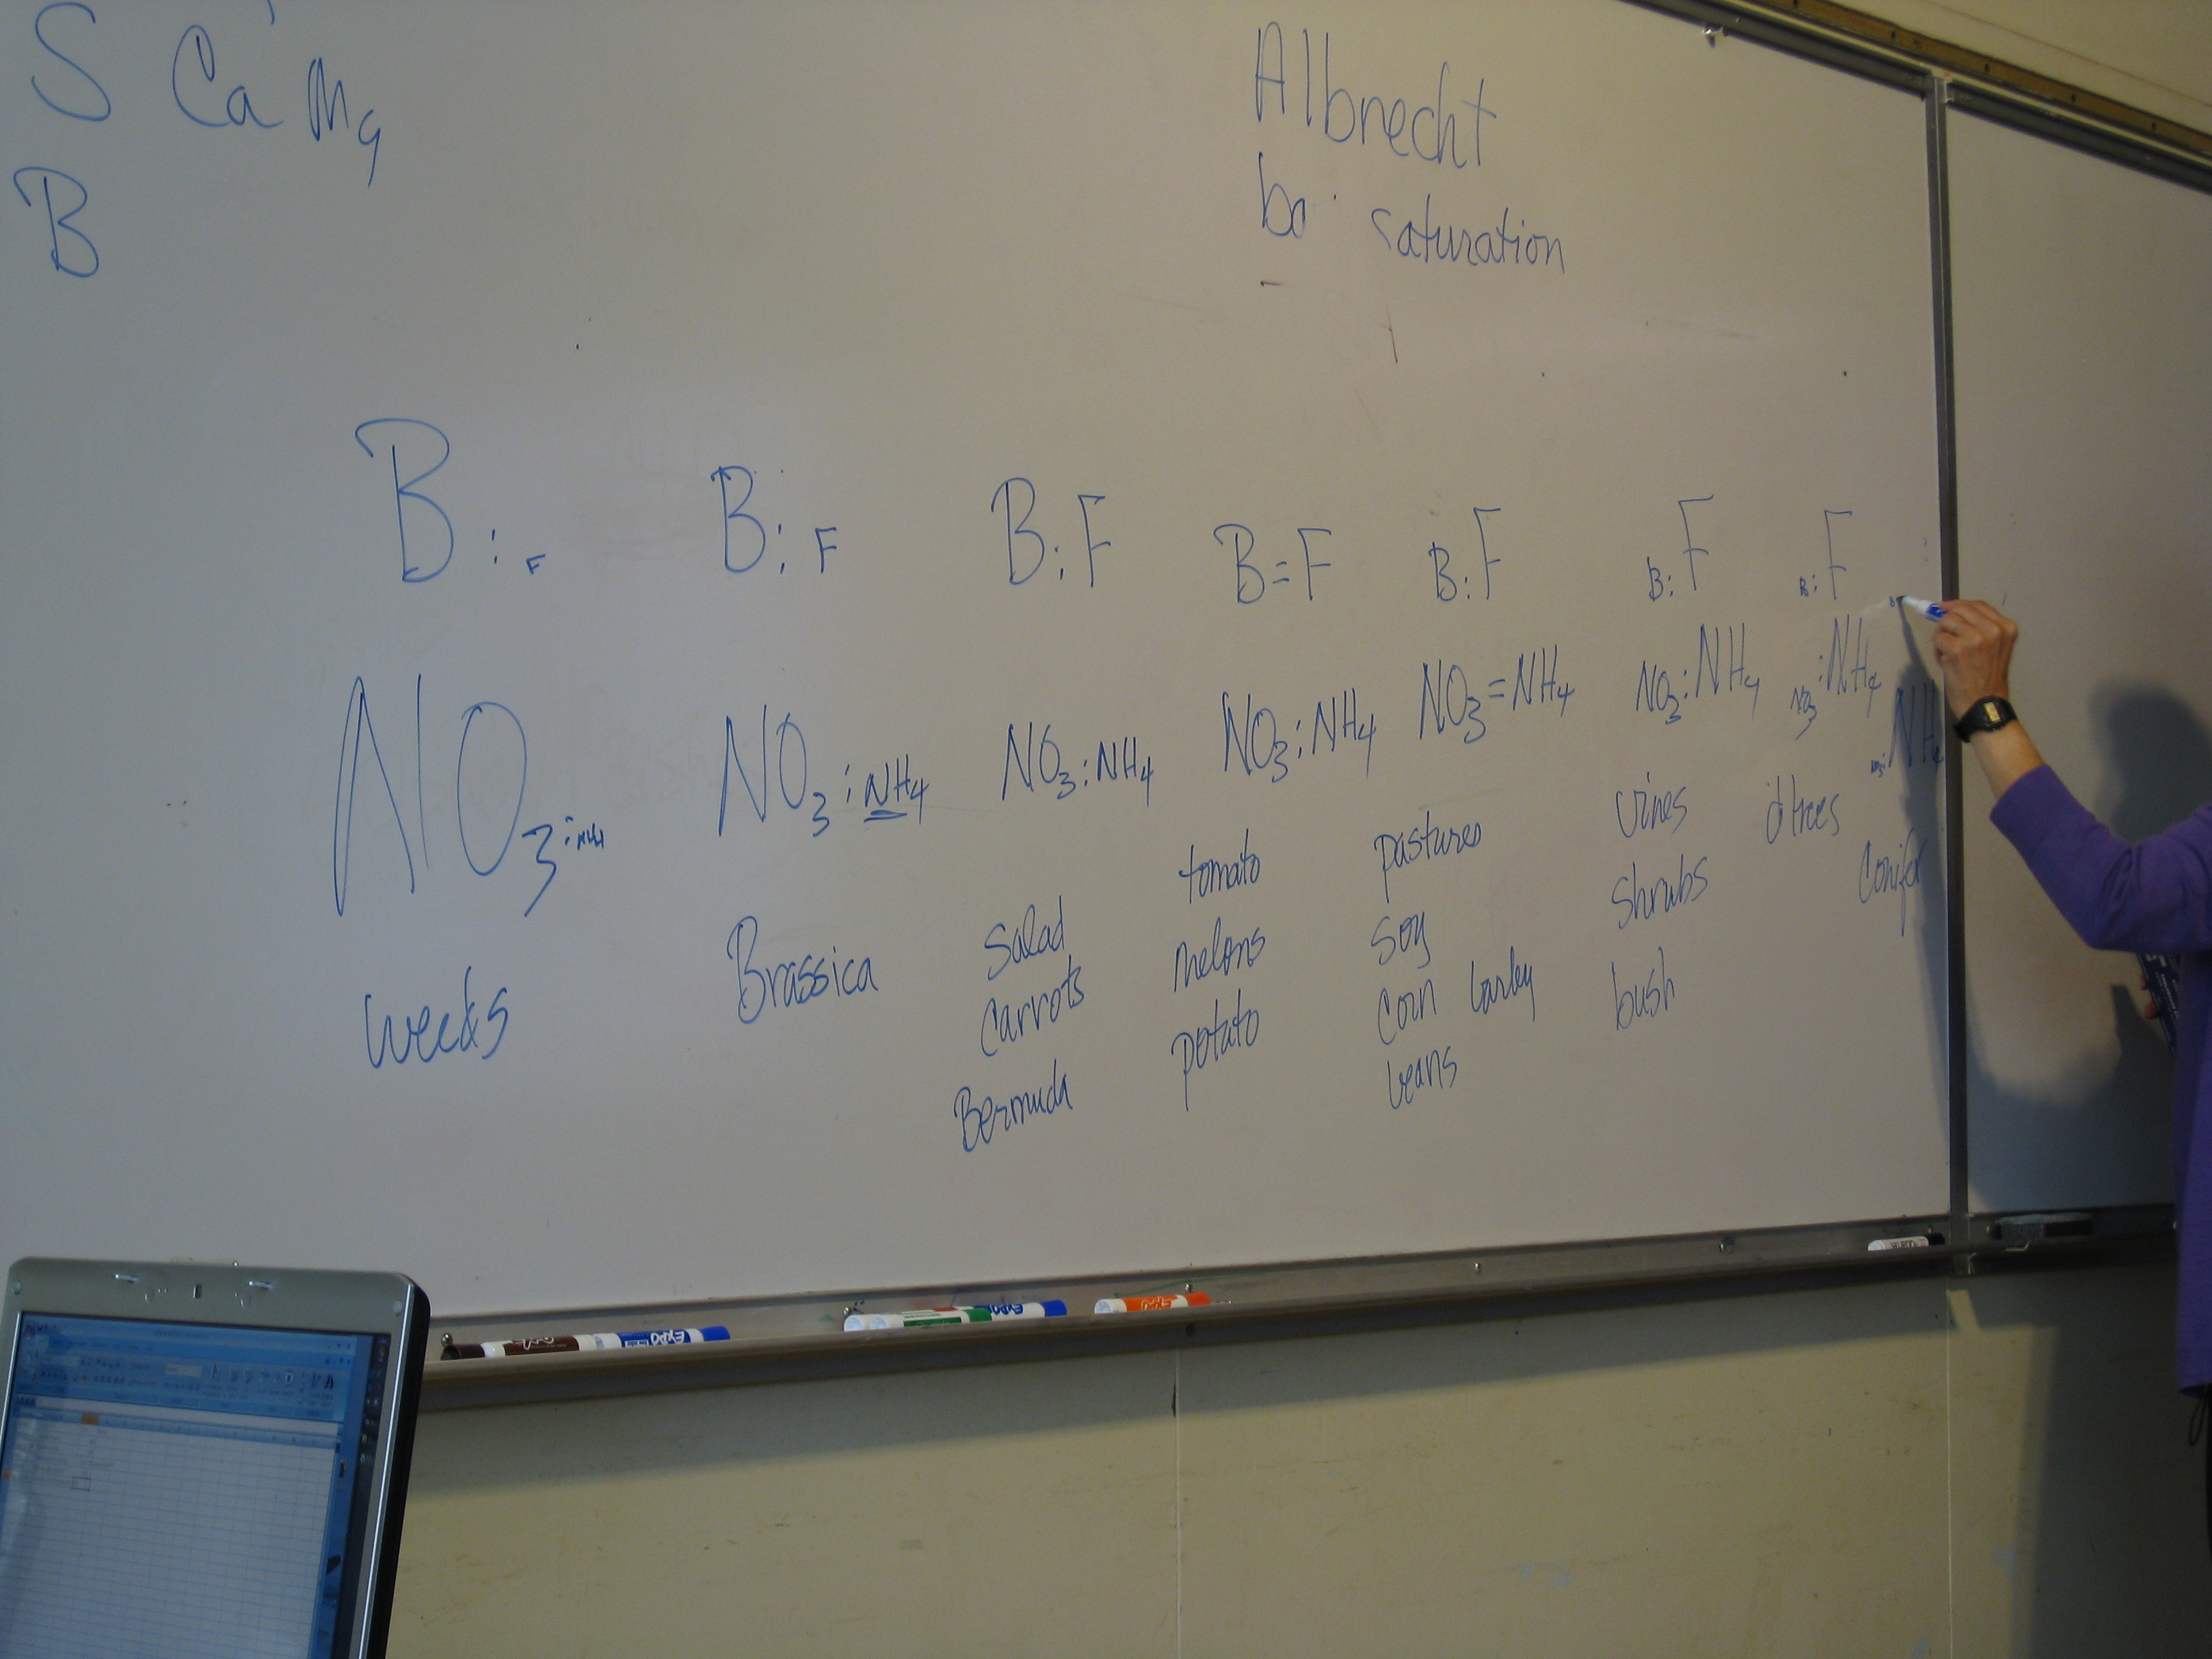 S Ca Mg
B
Albrecht
saturation
B:F B:F B:F B=F B:F B:F B:F
NO3:NH4 NO3:NH4 NO3:NH4 NO3:NH4 NO3=NH4 NO3:NH4 NO3:NH4 NH4
weeds
Brassica
Salad
Carrots
Bermuda
tomato
melons
potato
pastures
Soy
Corn barley
beans
vines
shrubs
bush
dtrees
Conifer
EXPO
EXPO
EXPO